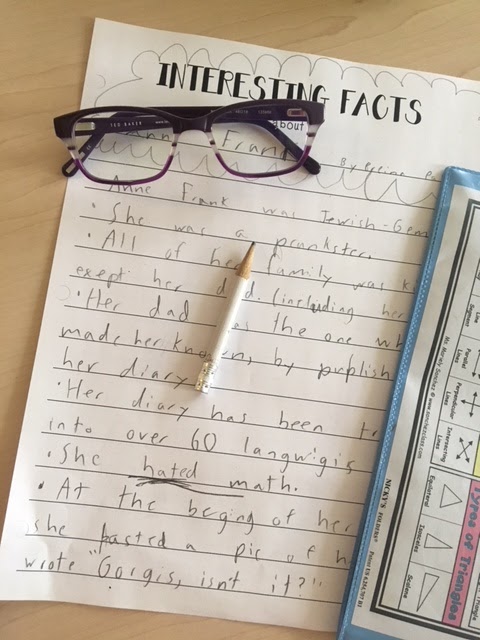 INTERESTING FACTS
about
TED BAKER
Anne Frank
By
Anne Frank was Jewish-Germ
• She was a prankster.
• All of her family was k
exept her dad. (including her
• Her dad the one wh
made her known, by publish
her diary
• Her diary has been tr
into over 60 langwigis
• She hated math.
• At the beging of her
she pasted a pic of h
wrote "Gorgis, isn't it?"
Line Segment
Parallel Lines
Perpendicular Lines
Intersecting Lines
Types of Triangles
Equilateral
Isosceles
Scalene
NICKY'S FOLDERS®